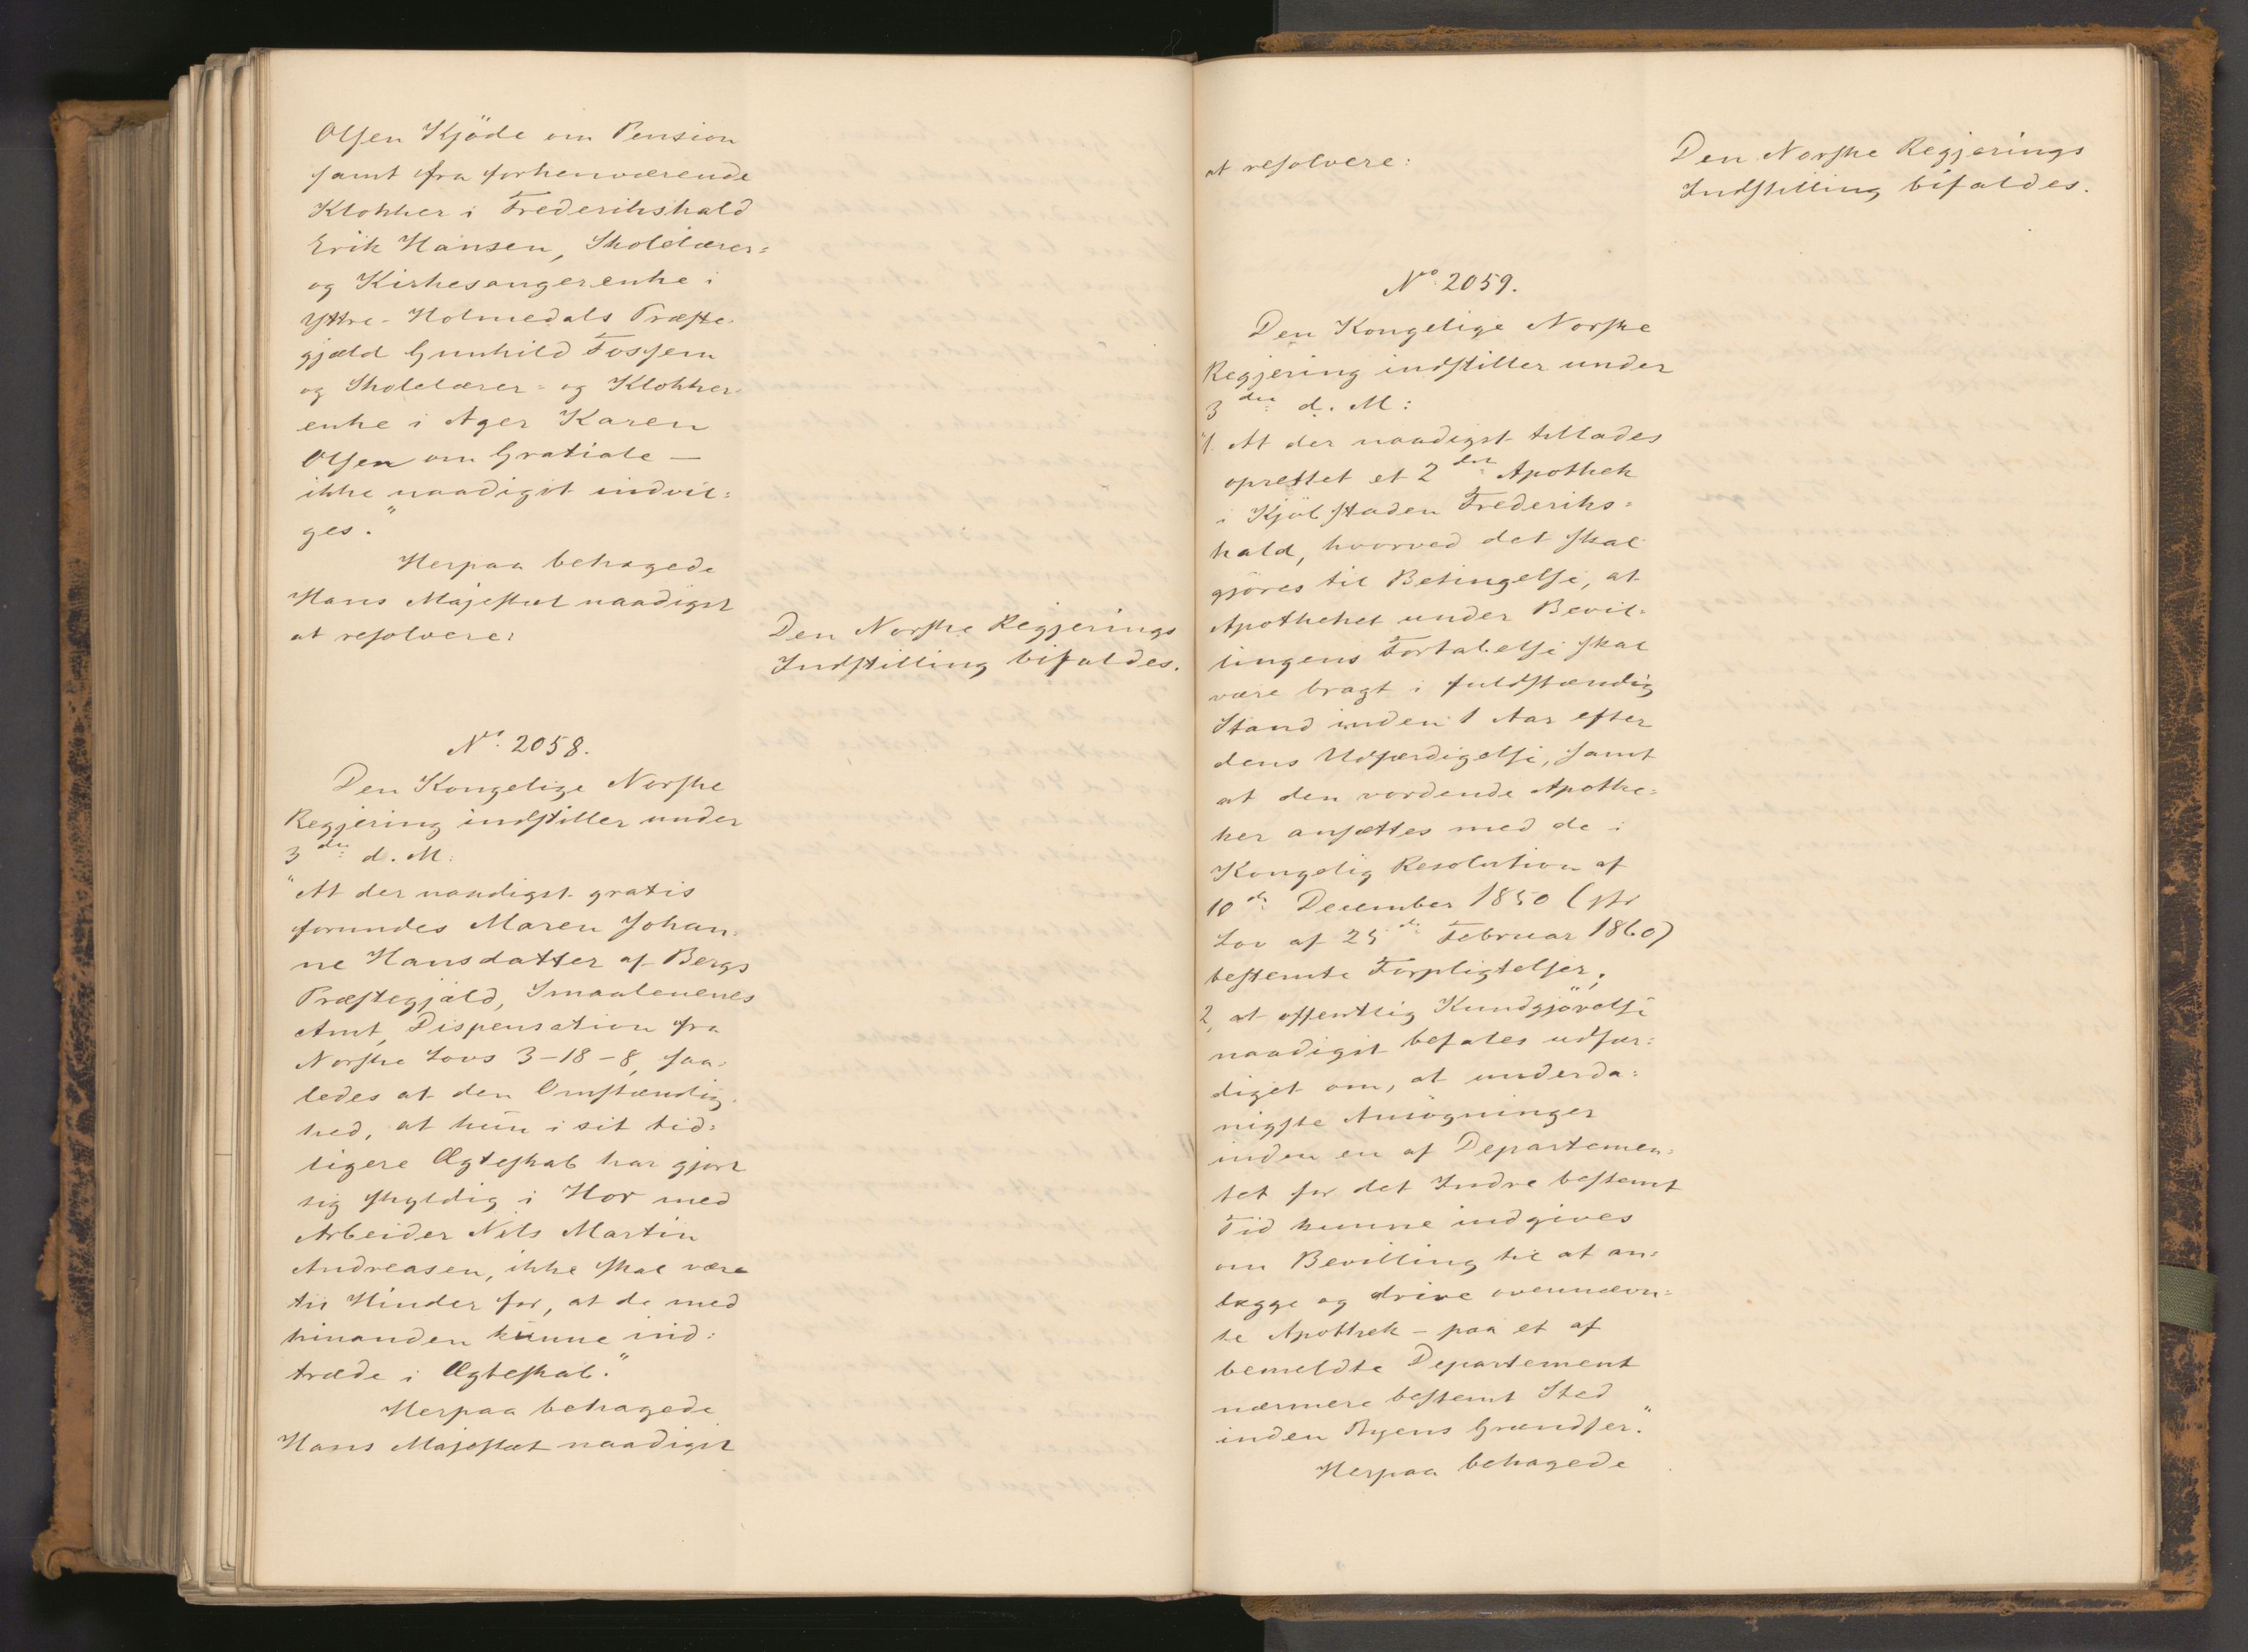 Olsen Kjöde om Pension
samt fra forhenværende
Klokker i Frederikshald
Erik Hansen, Skolelærer=
og Kirkesangerenke i
Yttre-Holmedals Præste-
gjæld Gunhild Tossem
og Skolelærer= og Klokker-
enke i Ager Karen
Olsen om Gratiale —
ikke naadigst indvil=
ges."
Herpaa behagede
Hans Majestæt naadigst
at resolvere:
Den Norske Regjerings
Indstilling bifaldes.
No. 2058.
Den Kongelige Norske
Regjering indstiller under
3die d. M:
"At der naadigst gratis
forundes Maren Johan=
ne Hansdatter af Bergs
Præstegjæld, Smaalenenes
Amt, Dispensation fra
Norske Lovs 3-18-8, saa-
ledes at den Omstændig-
hed, at hun i sit tid=
ligere Ægteskab har gjort
sig skyldig i Hor med
Arbeider Nils Martin
Andreasen, ikke skal være
til Hinder for, at de med
hinanden kunne ind=
træde i Ægteskab."
Herpaa behagede
Hans Majestæt naadigst
at resolvere:
Den Norske Regjerings
Indstilling bifaldes.
No. 2059.
Den Kongelige Norske
Regjering indstiller under
3die d. M:
"1. At der naadigst tillades
oprettet et 2det Apothek
i Kjöbstaden Frederiks=
hald, hvorved det skal
gjöres til Betingelse, at
Apotheket under Bevil=
lingens Fortabelse skal
være bragt i fuldstændig
Stand inden 1 Aar efter
dens Udfærdigelse, samt
at den vordende Apothe=
ker ansættes med de i
Kongelig Resolution af
10de December 1850 (jfr
Lov af 25de Februar 1860)
bestemte Forpligtelser;
2, at offentlig Kundgjörelse
naadigst befales udfær=
diget om, at underda=
nigste Ansögninger
inden en af Departemen=
tet for det Indre bestemt
Tid kunne indgives
om Bevilling til at an=
lægge og drive ovennævn=
te Apothek - paa et af
bemeldte Departement
nærmere bestemt Sted
inden Byens Grændser."
Herpaa behagede